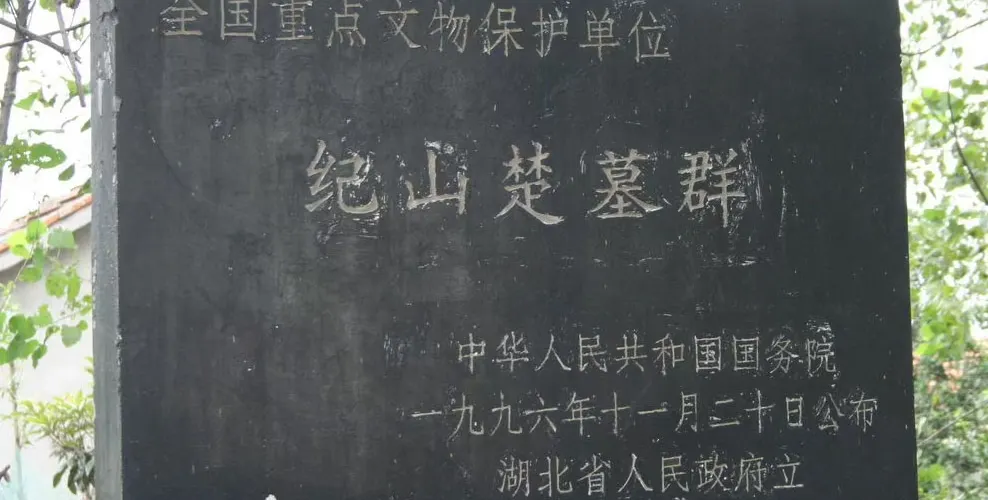 全国重点文物保护单位
纪山楚墓群
中华人民共和国国务院
一九九六年十一月二十日公布
湖北省人民政府立